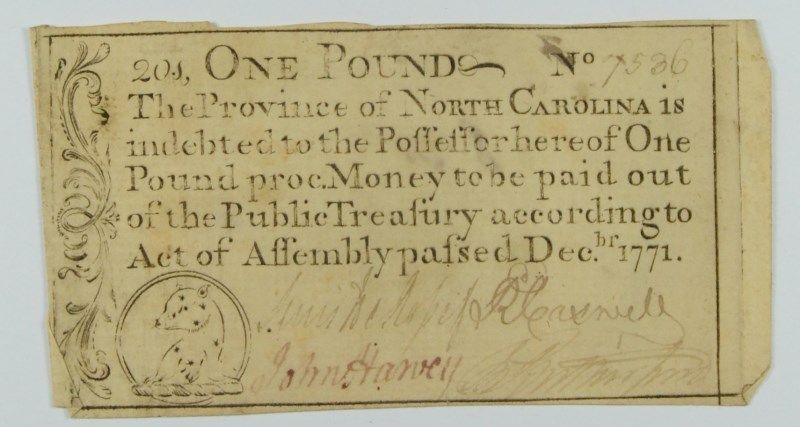 20s, ONE POUND No 7536
The Province of NORTH CAROLINA is
indebted to the Poſſeſſor hereof One
Pound proc. Money to be paid out
of the Public Treaſury according to
Act of Aſſembly paſsed Dec.br 1771.
Lewis De Roſſet RCaswell
John Harvey